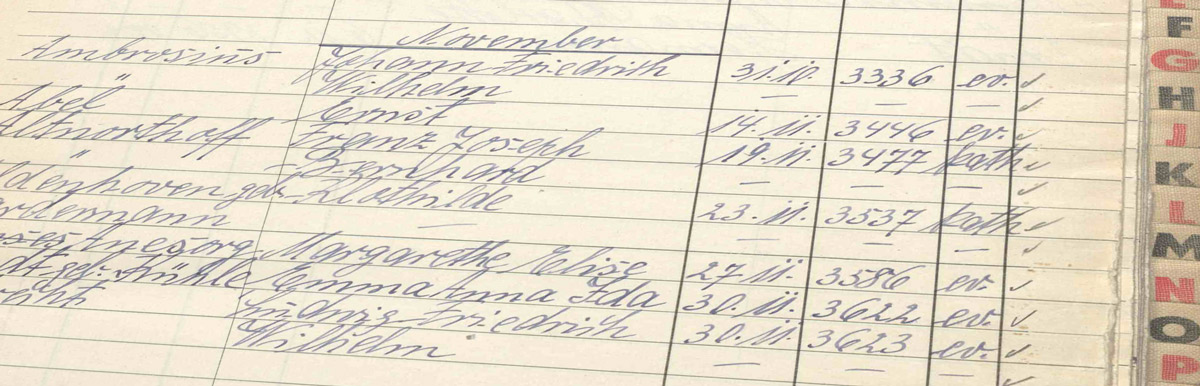 November
Ambrosius Johann Friedrich 31.10. 3336 ev. ✓
" Wilhelm — — — ✓
Abel Ernst 14.11. 3446 ev. ✓
Altnorthoff Franz Joseph 19.11. 3477 kath ✓
" Bernhard — — — ✓
geb. Klothilde 23.11. 3537 kath ✓
— — — — ✓
Anesorg Margarethe Elise 27.11. 3586 ev. ✓
geb. Emma Anna Ida 30.11. 3622 ev. ✓
Ludwig Friedrich 30.11. 3623 ev. ✓
Wilhelm — — — ✓
F
G
H
J
K
L
M
N
O
P